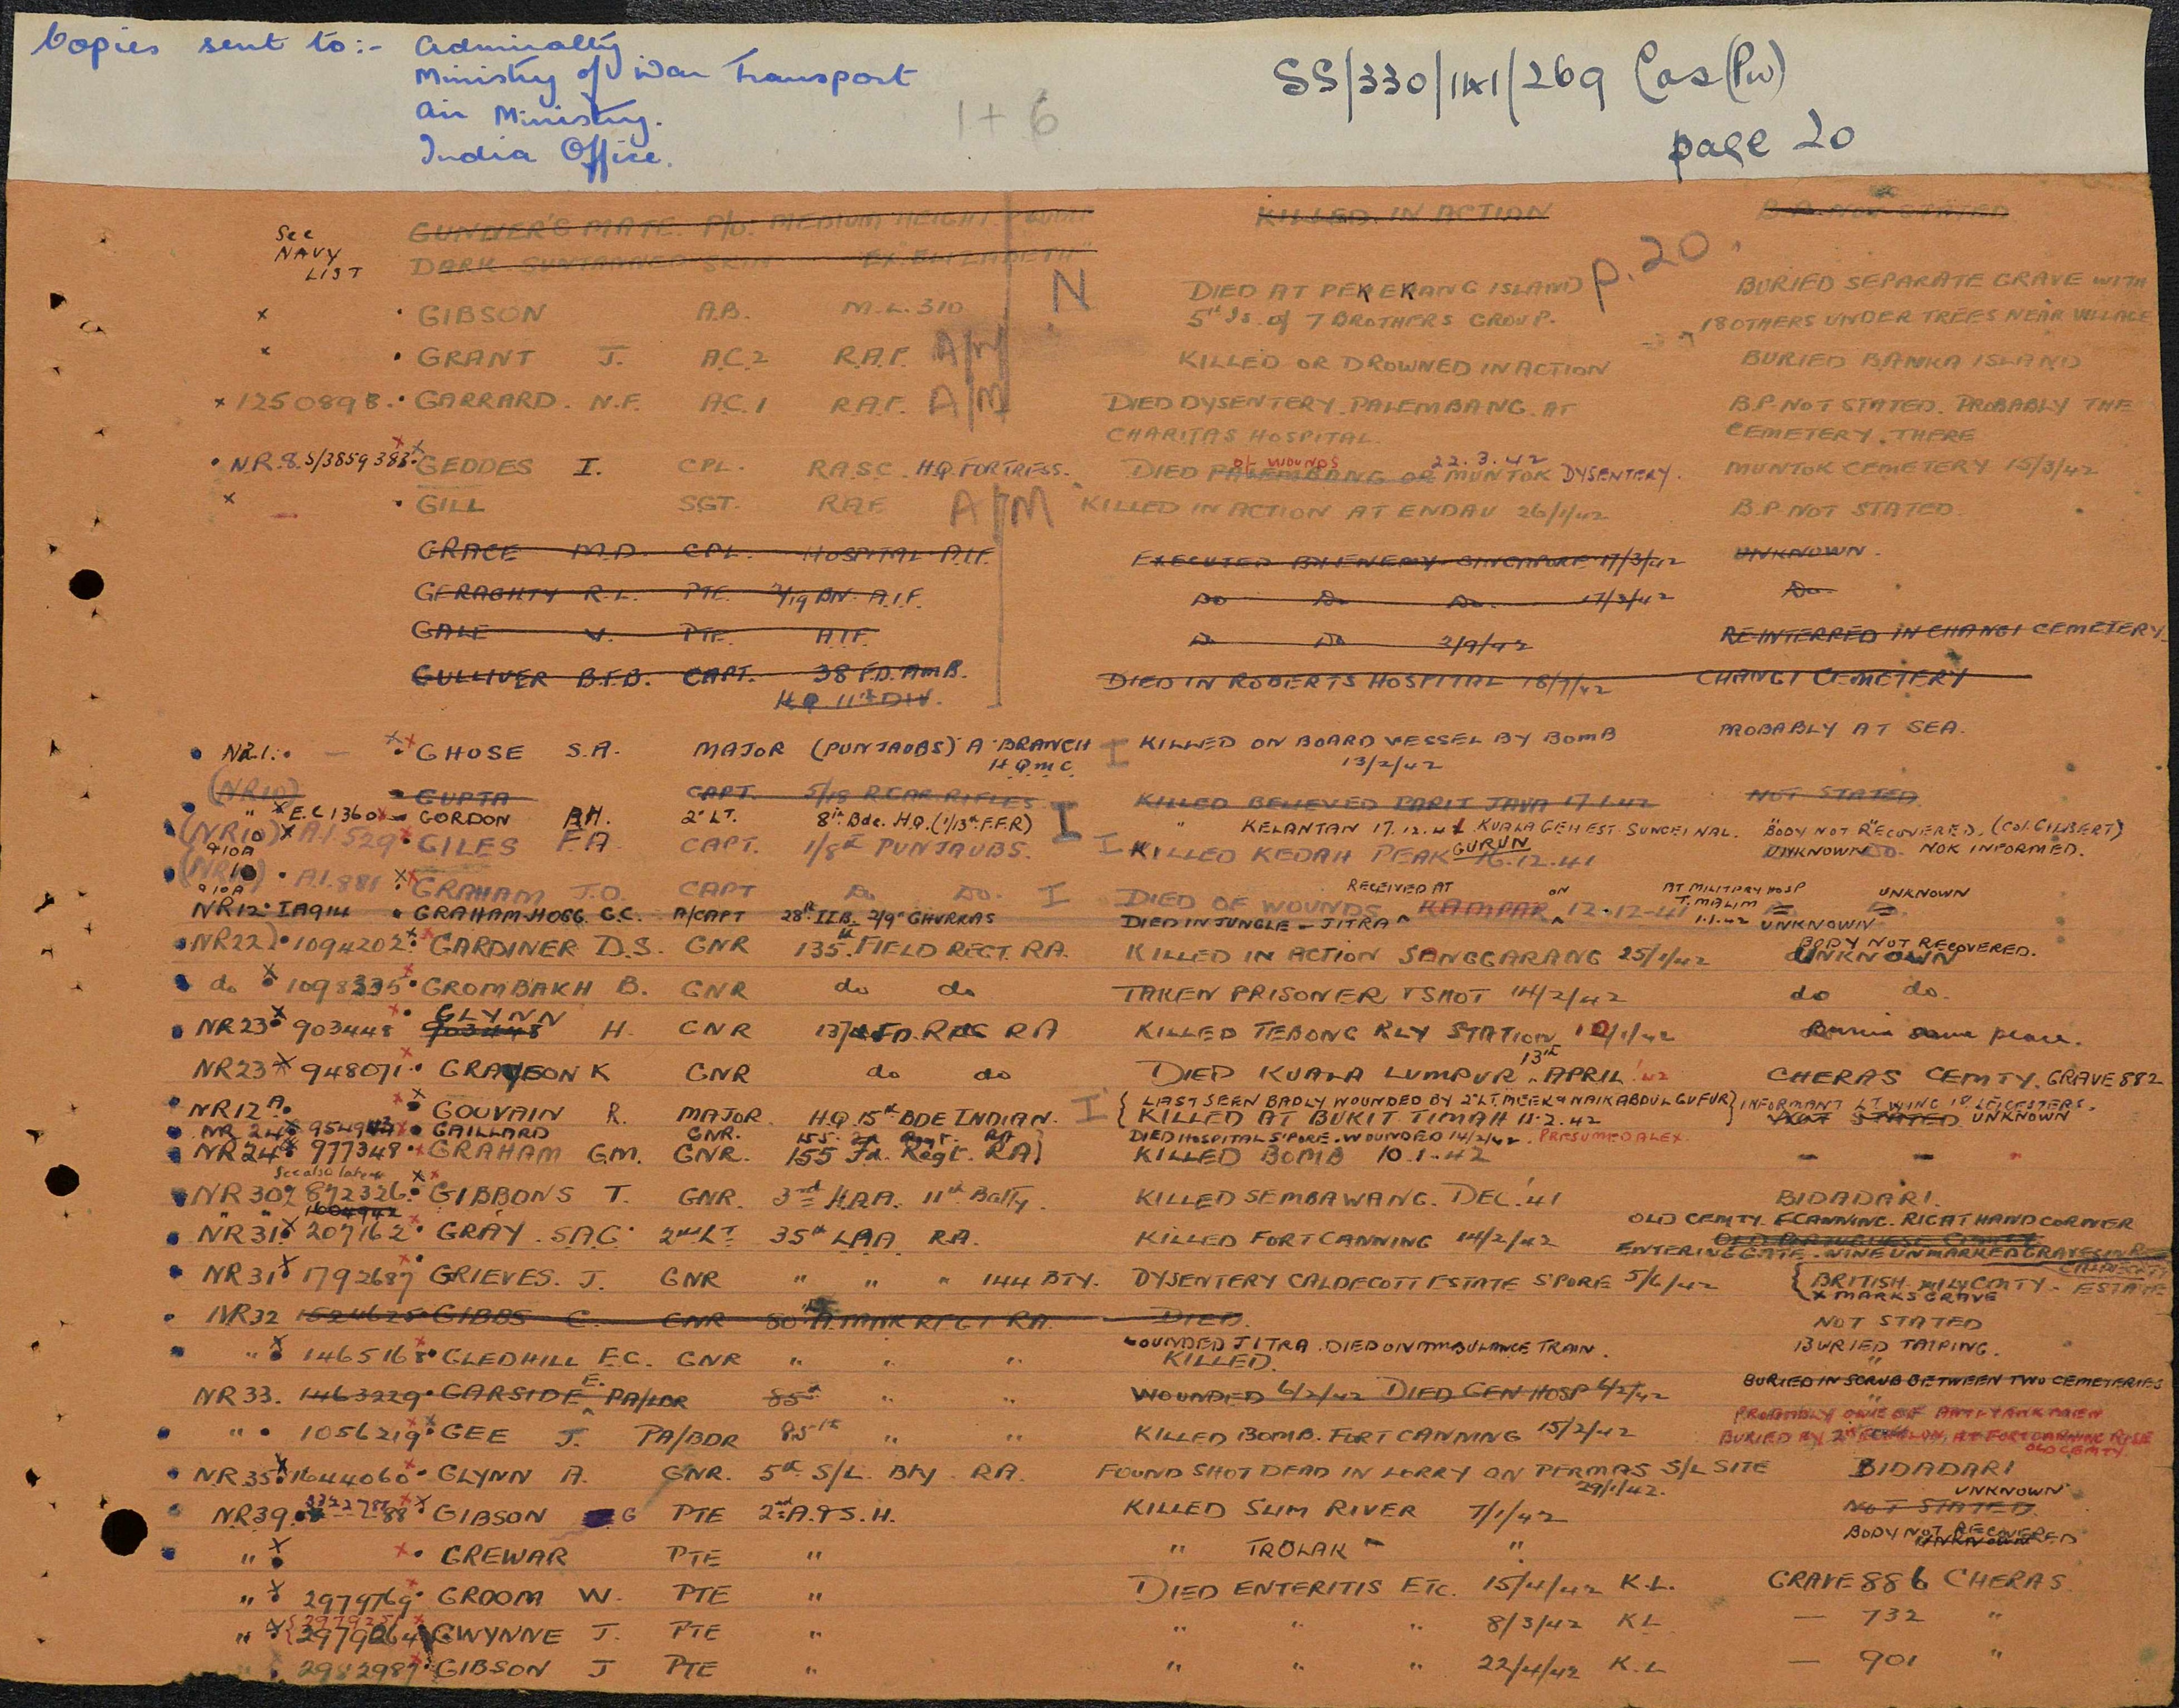 Copies sent to:- Admiralty
Ministry of War Transport
Air Ministry.
India Office.
1+6
SS/330/141/269 Cas(PW)
page 20
See NAVY LIST
GUNNER'S MATE. P/O. MEDIUM HEIGHT KILLED IN ACTION B.P. NOT STATED
DARK SUNTANNED SKIN EX. ELIZABETH"
N p.20.
x . GIBSON A.B. M.L. 310 DIED AT PEKEKANG ISLAND BURIED SEPARATE GRAVE WITH
5th Is. of 7 BROTHERS GROUP. 18 OTHERS UNDER TREES NEAR VILLAGE
x . GRANT J. AC.2 R.A.F. A/M KILLED OR DROWNED IN ACTION BURIED BANKA ISLAND
x 1250898 . GARRARD. N.F. AC.1 R.A.F. A/M DIED DYSENTERY. PALEMBANG. AT B.P. NOT STATED. PROBABLY THE
CHARITAS HOSPITAL. CEMETERY. THERE
of wounds 22.3.42
. NR.8. S/3859383 . GEDDES I. CPL. RASC. H.Q. FORTRESS. DIED PALEMBANG OR MUNTOK DYSENTERY. MUNTOK CEMETERY 15/3/42
x . GILL SGT. RAF A/M KILLED IN ACTION AT ENDAU 26/1/42 B.P. NOT STATED
GRACE M.D. CPL. HOSPITAL A.I.F. EXECUTED BY ENEMY SINGAPORE 17/3/42 UNKNOWN.
GERAGHTY R.L. PTE 2/19 BN. A.I.F. Do Do Do. 17/3/42 Do
GALE V. PTE AIF Do Do 2/9/42 RE-INTERRED IN CHANGI CEMETERY
GULLIVER B.F.B. CAPT. 38 F.D. AMB. DIED IN ROBERTS HOSPITAL 18/7/42 CHANGI CEMETERY
H.Q. 11th DIV.
NR1. . GHOSE S.A. MAJOR (PUNJAUBS) A BRANCH I KILLED ON BOARD VESSEL BY BOMB PROBABLY AT SEA.
H.Q.M.C. 13/2/42
(NR10) GUPTA CAPT. 5/18 R.GAR. RIFLES KILLED BELIEVED PARIT JAVA 17.1.42 NOT STATED
" x E.C 1360 GORDON 2nd LT. 8th Bde. H.Q. (1/13th F.F.R) I " KELANTAN 17.12.41 BODY NOT RECOVERED. (Col. GILBERT)
(NR10) x A.I.529 . GILES F.A. CAPT. 1/8th PUNJAUBS. I KILLED KEDAH PEAK GURUN 16.12.41 UNKNOWN Do. NOK INFORMED.
910A
RECEIVED AT ON AT MILITARY HOSP T. MALIM UNKNOWN
(NR10) . A.I.881 . GRAHAM J.O. CAPT Do Do. I DIED OF WOUNDS KAMPAR 12-12-41 1.1.42
910A
NR12 IA914 . GRAHAM-HOGG G.C. A/CAPT 28th IIB. 2/9th GHURKAS DIED IN JUNGLE - JITRA UNKNOWN
BODY NOT RECOVERED.
NR22). 1094202 . GARDINER D.S. GNR 135th FIELD REGT. RA. KILLED IN ACTION SENGGARANG 25/1/42 UNKNOWN
do 1098335 . GROMBAKH B. GNR do do TAKEN PRISONER & SHOT 14/2/42 do do.
GLYNN
NR23 903448 903448 H. GNR 137th FD. RA KILLED TEBONG RLY STATION 10/1/42 Buried same place.
NR23 x 948071 . GRAYSON K GNR do do DIED KUALA LUMPUR 13th APRIL '42 CHERAS CEMTY. GRAVE 882
NR12A. GOUVAIN R. MAJOR H.Q. 15th BDE INDIAN. I { LAST SEEN BADLY WOUNDED BY 2nd LT. MEEK & NAIK ABDUL GUFUR } INFORMANT LT WING 1st LEICESTERS.
KILLED AT BUKIT TIMAH 11.2.42 NOT STATED UNKNOWN
NR 24 GAILLARD GNR. 155 Fd Regt. RA DIED HOSPITAL S'PORE. WOUNDED 14/2/42. PRESUMED ALEX
NR24 977348 . GRAHAM G.M. GNR. 155 Fd. Regt. RA) KILLED BOMB 10.1.42 - - "
See also later
NR 30 872326 . GIBBONS T. GNR. 3rd H.A.A. 11th Batty. KILLED SEMBAWANG. DEC. '41 BIDADARI.
1604942
OLD CEMTY. F. CANNING. RIGHT HAND CORNER
NR 31 207162 . GRAY. S.A.G. 2nd LT 35th LAA RA. KILLED FORT CANNING 14/2/42 OLD PORTUGUESE CEMTY
ENTERING GATE. NINE UNMARKED GRAVES IN R
NR 31 1792687 GRIEVES. J. GNR " " " 144 BTY. DYSENTERY CALDECOTT ESTATE S'PORE 5/6/42 { BRITISH MILY CEMTY. CALDECOTT ESTATE
X MARKS GRAVE
NR32 1524625 GIBBS C. GNR 80th A. TANK REGT RA DIED. NOT STATED
" 1465168 . GLEDHILL F.C. GNR " " " WOUNDED JITRA. DIED ON AMBULANCE TRAIN. BURIED TAIPING.
KILLED. "
NR 33. 1463229 . GARSIDE E. PA/BDR 85th " " WOUNDED 6/2/42 DIED GEN HOSP 6/2/42 BURIED IN SCRUB BETWEEN TWO CEMETERIES
PROBABLY ONE OF ANTI-TANK MEN
" . 1056219 . GEE J. PA/BDR 85th " " KILLED BOMB. FORT CANNING 15/2/42 BURIED BY 2nd ECHELON, AT FORT CANNING RISE
OLD CEMTY.
NR 35 1644060 . GLYNN A. GNR. 5th S/L. Bty. RA. FOUND SHOT DEAD IN LORRY ON PERMAS S/L SITE BIDADARI
29/1/42.
UNKNOWN
NR39. GIBSON G PTE 2nd A.&S.H. KILLED SLIM RIVER 7/1/42 NOT STATED
BODY NOT RECOVERED
" . GREWAR PTE " " TROLAK " UNKNOWN
" 2979769 . GROOM W. PTE " DIED ENTERITIS ETC. 15/4/42 K.L. GRAVE 886 CHERAS
" 2979264 GWYNNE J. PTE " " " " 8/3/42 K.L — 732 "
2982987 . GIBSON J PTE " " " " 22/4/42 K.L — 901 "